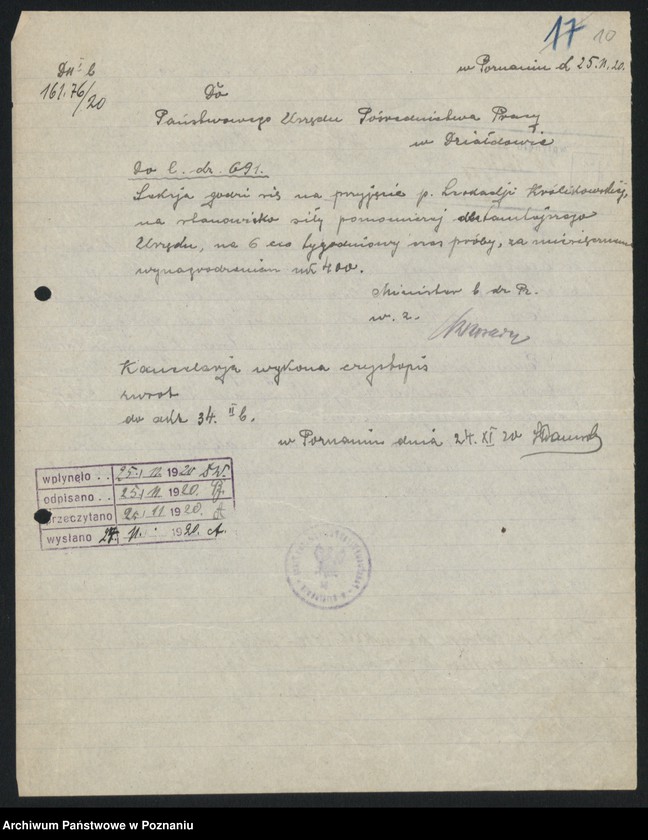 17 10
w Poznaniu d 25.11.20.
Dn I b
161.76/20
Do
Państwowego Urzędu Pośrednictwa Pracy
w Działdowie
Do l. dz. 691.
Sekcja godzi się na przyjęcie p. Leokadji Królikowskiej,
na stanowisko siły pomocniczej dla tamtejszego
Urzędu, na 6 cio tygodniowy czas próby, za miesięcznem
wynagrodzeniem mk 400.
Minister b. dz. Pr.
w. z.
Kancelarja wykona czystopis
zwrot
do akt 34. II b.
w Poznaniu dnia 24. XI 20
wpłynęło . . 25. 11. 1920
odpisano . . 25. 11. 1920.
przeczytano 25. 11. 1920.
wysłano 27. 11. 1920.
Archiwum Państwowe w Poznaniu